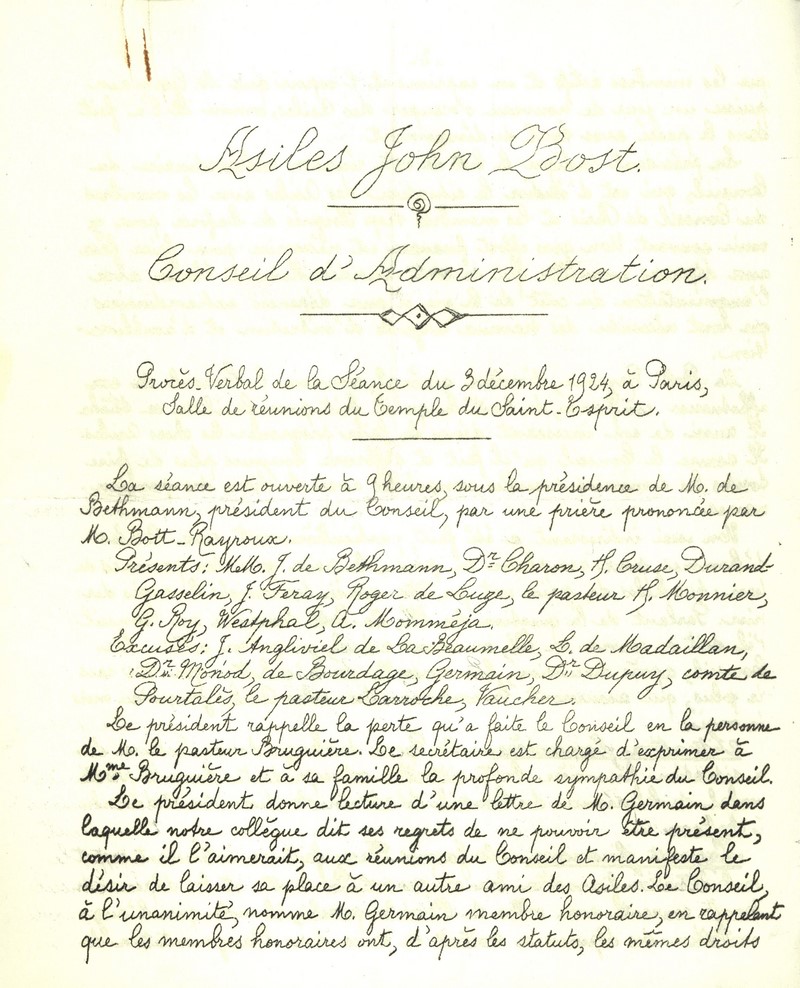 Asiles John Bost.
Conseil d'Administration.
Procès-Verbal de la Séance du 3 décembre 1924, à Paris,
Salle de réunions du Temple du Saint-Esprit.
La séance est ouverte à 9 heures, sous la présidence de M. de
Bethmann, président du Conseil, par une prière prononcée par
M. Bott-Rayroux.
Présents: MM. J. de Bethmann, Dr. Charon, H. Cruse, Durand-
Gasselin, J. Féray, Roger de Luze, le pasteur H. Monnier,
G. Roy, Westphal, A. Momméja.
Excusés: J. Angliviel de La Beaumelle, L. de Madaillan,
Dr. Monod, de Bourdage, Germain, Dr. Dupuy, comte de
Pourtalès, le pasteur Larroche, Vaucher.
Le président rappelle la perte qu'a faite le Conseil en la personne
de M. le pasteur Bruguière. Le secrétaire est chargé d'exprimer à
Mme Bruguière et à sa famille la profonde sympathie du Conseil.
Le président donne lecture d'une lettre de M. Germain dans
laquelle notre collègue dit ses regrets de ne pouvoir être présent,
comme il l'aimerait, aux réunions du Conseil et manifeste le
désir de laisser sa place à un autre ami des Asiles. Le Conseil,
à l'unanimité, nomme M. Germain membre honoraire, en rappelant
que les membres honoraires ont, d'après les statuts, les mêmes droits